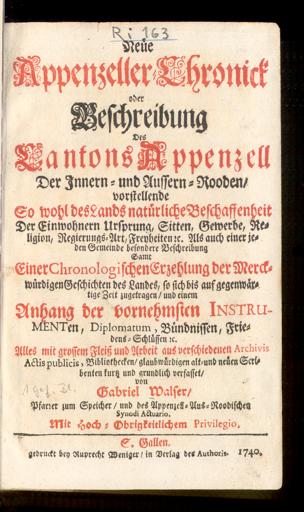 Ri 163
Neüe
Appenzeller-Chronick
oder
Beschreibung
Des
Cantons Appenzell
Der Innern- und Aussern-Rooden/
vorstellende
So wohl des Lands natürliche Beschaffenheit
Der Einwohnern Ursprung, Sitten, Gewerbe, Re-
ligion, Regierungs-Art, Freyheiten ꝛc. Als auch einer je-
den Gemeinde besondere Beschreibung
Samt
Einer Chronologischen Erzehlung der Merck-
würdigen Geschichten des Landes, so sich bis auf gegenwär-
tige Zeit zugetragen/ und einem
Anhang der vornehmsten INSTRU-
MENTen, Diplomatum, Bündnissen, Frie-
dens-Schlüssen ꝛc.
Alles mit grossem Fleiß und Arbeit aus verschiedenen Archivis
Actis publicis, Bibliothecken/ glaubwürdigen alt- und neuen Scri-
benten kurtz und grundlich verfasset/
von
Gabriel Walser/
Pfarrer zum Speicher/ und des Appenzell-Aus-Roodischen
Synodi Actuario.
Mit Hoch-Obrigkeitlichem Privilegio.
S. Gallen.
gedruckt bey Ruprecht Weniger/ in Verlag des Authoris. 1740.